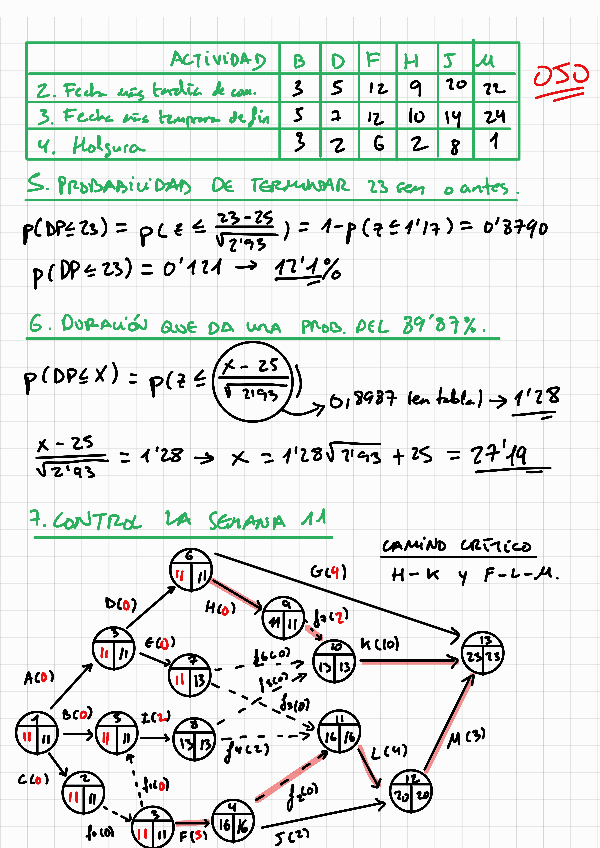 ACTIVIDAD B D F H J M
2. Fecha más tardía de com. 3 5 12 9 20 22
3. Fecha más temprana de fin 5 7 12 10 14 24
4. Holgura 3 2 6 2 8 1
OSO
5. PROBABILIDAD DE TERMINAR 23 sem o antes.
p(DP≤23) = p(z ≤ (23-25)/√2'93) = 1-p(z≤1'17) = 0'8790
p(DP≤23) = 0'121 → 12'1%
6. DURACIÓN QUE DA UNA PROB. DEL 89'87%.
p(DP≤X) = p(z ≤ (X-25)/√2'93)
0,8987 (en tabla) → 1'28
(X-25)/√2'93 = 1'28 → X = 1'28√2'93 + 25 = 27'19
7. CONTROL LA SEMANA 11
CAMINO CRÍTICO
H-K y F-L-M.
6 11 11
G(4)
D(0)
H(0)
9 11 11
f7(2)
3 11 11
E(0)
7 11 13
f6(0)
10 13 13
K(10)
13 23 23
A(0)
f5(0)
f3(0)
1 11 11
B(0)
5 11 11
I(2)
8 13 13
f4(2)
11 16 16
L(4)
M(3)
C(0)
2 11 11
f1(0)
f0(0)
3 11 11
F(5)
4 16 16
f2(0)
J(2)
12 20 20